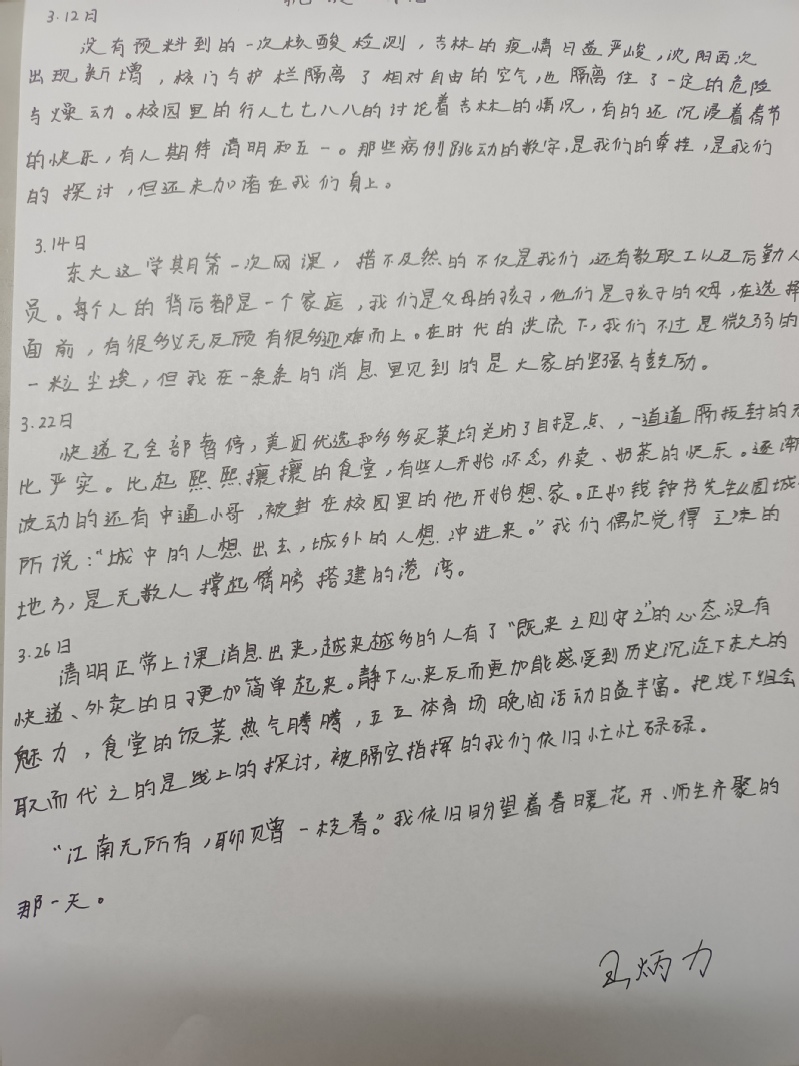 3.12日
没有预料到的一次核酸检测，吉林的疫情日益严峻，沈阳再次
出现新增，校门与护栏隔离了相对自由的空气，也隔离住了一定的危险
与燥动。校园里的行人七七八八的讨论着吉林的情况，有的还沉浸着春节
的快乐，有人期待清明和五一。那些病例跳动的数字，是我们的牵挂，是我们
的探讨，但还未加诸在我们身上。
3.14日
东大这学期第一次网课，措不及然的不仅是我们，还有教职工以及后勤人
员。每个人的背后都是一个家庭，我们是父母的孩子，他们是孩子的父母，在选择
面前，有很多义无反顾有很多迎难而上。在时代的洪流下，我们不过是微弱的
一粒尘埃，但我在一条条的消息里见到的是大家的坚强与鼓励。
3.22日
快递已全部暂停，美团优选和多多买菜均关闭了自提点、，一道道隔板封的无
比严实。比起熙熙攘攘的食堂，有些人开始怀念，外卖、奶茶的快乐。逐渐
波动的还有中通小哥，被封在校园里的他开始想、家。正如钱钟书先生《围城》
所说：“城中的人想出去，城外的人想冲进来。”我们偶尔觉得乏味的
地方，是无数人撑起臂膀搭建的港湾。
3.26日
清明正常上课消息出来，越来越多的人有了“既来之则守之”的心态没有
快递、外卖的日子更加简单起来。静下心来反而更加能感受到历史沉淀下东大的
魅力，食堂的饭菜热气腾腾，五五体育场晚间活动日益丰富。把线下组会
取而代之的是线上的探讨，被隔空指挥的我们依旧忙忙碌碌。
“江南无所有，聊赠一枝春。”我依旧盼望着春暖花开、师生齐聚的
那一天。
王炳力